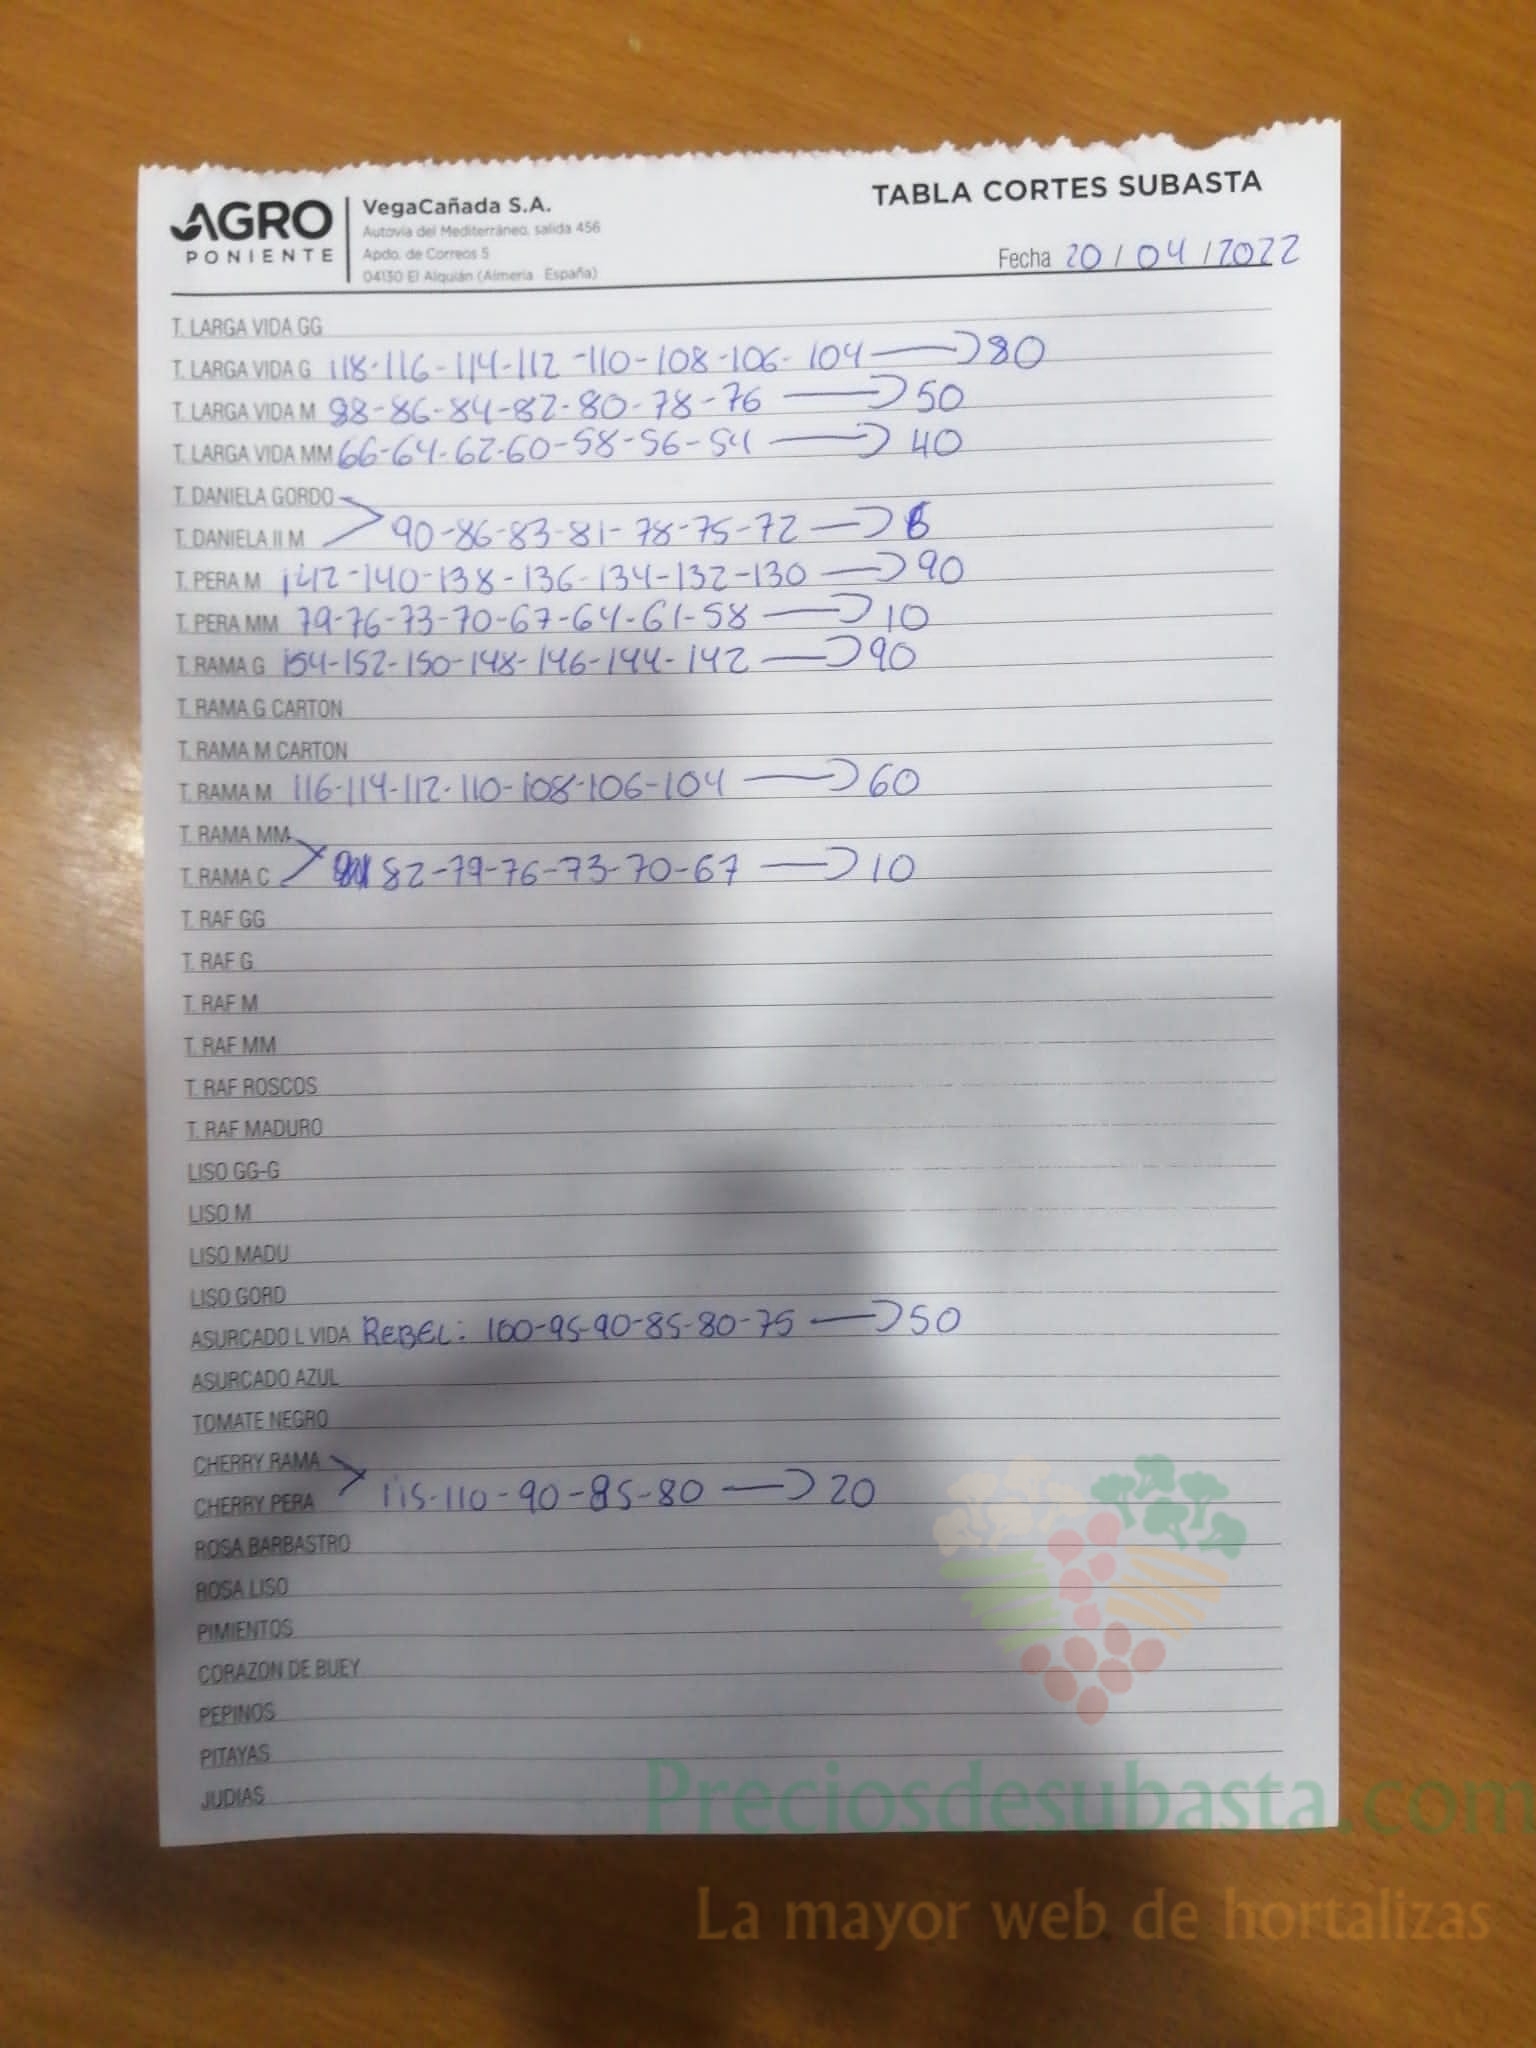 AGRO
PONIENTE
VegaCañada S.A.
Autovía del Mediterráneo, salida 456
Apdo. de Correos 5
04130 El Alquián (Almería España)
TABLA CORTES SUBASTA
Fecha 20 / 04 / 2022
T. LARGA VIDA GG
T. LARGA VIDA G 118-116-114-112-110-108-106-104 → 80
T. LARGA VIDA M 88-86-84-82-80-78-76 → 50
T. LARGA VIDA MM 66-64-62-60-58-56-54 → 40
T. DANIELA GORDO
T. DANIELA II M 90-86-83-81-78-75-72 →
T. PERA M 142-140-138-136-134-132-130 → 90
T. PERA MM 79-76-73-70-67-64-61-58 → 10
T. RAMA G 154-152-150-148-146-144-142 → 90
T. RAMA G CARTON
T. RAMA M CARTON
T. RAMA M 116-114-112-110-108-106-104 → 60
T. RAMA MM
T. RAMA C 82-79-76-73-70-67 → 10
T. RAF GG
T. RAF G
T. RAF M
T. RAF MM
T. RAF ROSCOS
T. RAF MADURO
LISO GG-G
LISO M
LISO MADU
LISO GORD
ASURCADO L VIDA REBEL: 100-95-90-85-80-75 → 50
ASURCADO AZUL
TOMATE NEGRO
CHERRY RAMA
CHERRY PERA 115-110-90-85-80 → 20
ROSA BARBASTRO
ROSA LISO
PIMIENTOS
CORAZON DE BUEY
PEPINOS
PITAYAS
JUDIAS
Preciosdesubasta.com
La mayor web de hortalizas